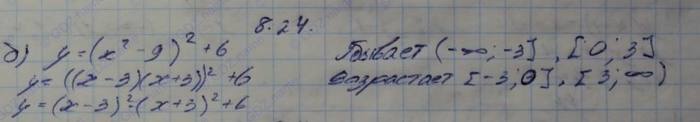 8.24.
б) y = (x² - 9)² + 6
y = ((x - 3)(x + 3))² + 6
y = (x - 3)²·(x + 3)² + 6
Убывает (-∞; -3], [0; 3]
Возрастает [-3; 0], [3; ∞)